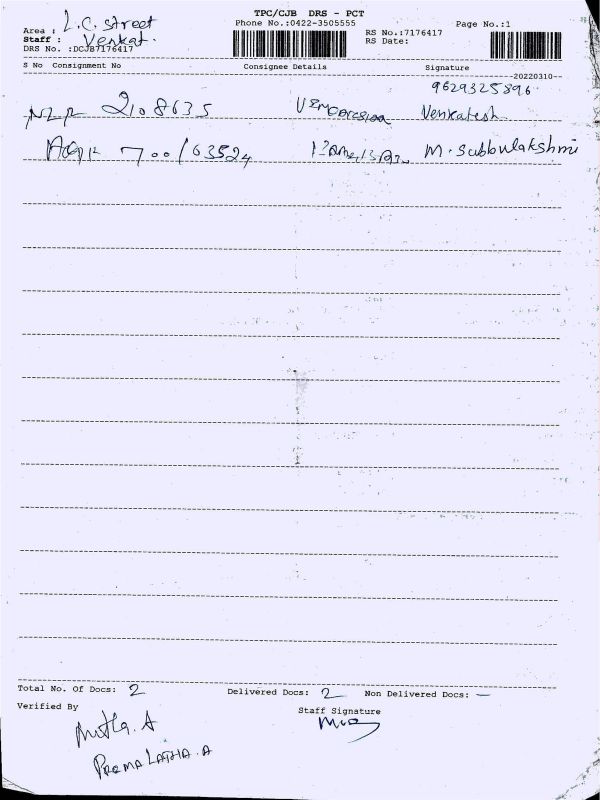 TPC/CJB DRS - PCT
Area : L.C. Street Phone No.:0422-3505555 Page No.:1
Staff : Venkat. RS No.:7176417
DRS No. :DCJB7176417 RS Date:
S No Consignment No Consignee Details Signature
20220310
9629325896
NLR 2108635 Venkatesh
700163524 M. Subbulakshmi
Total No. Of Docs: 2 Delivered Docs: 2 Non Delivered Docs: —
Verified By Staff Signature
PREMA LATHA.A